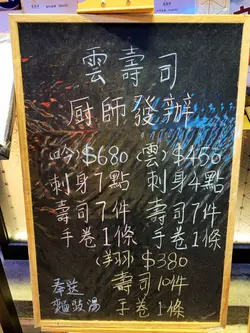 雲壽司
廚師發辦
(吟)$680 (雲)$450
刺身7點 刺身4點
壽司7件 壽司7件
手卷1條 手卷1條
$380
壽司10件
手卷1條
湯